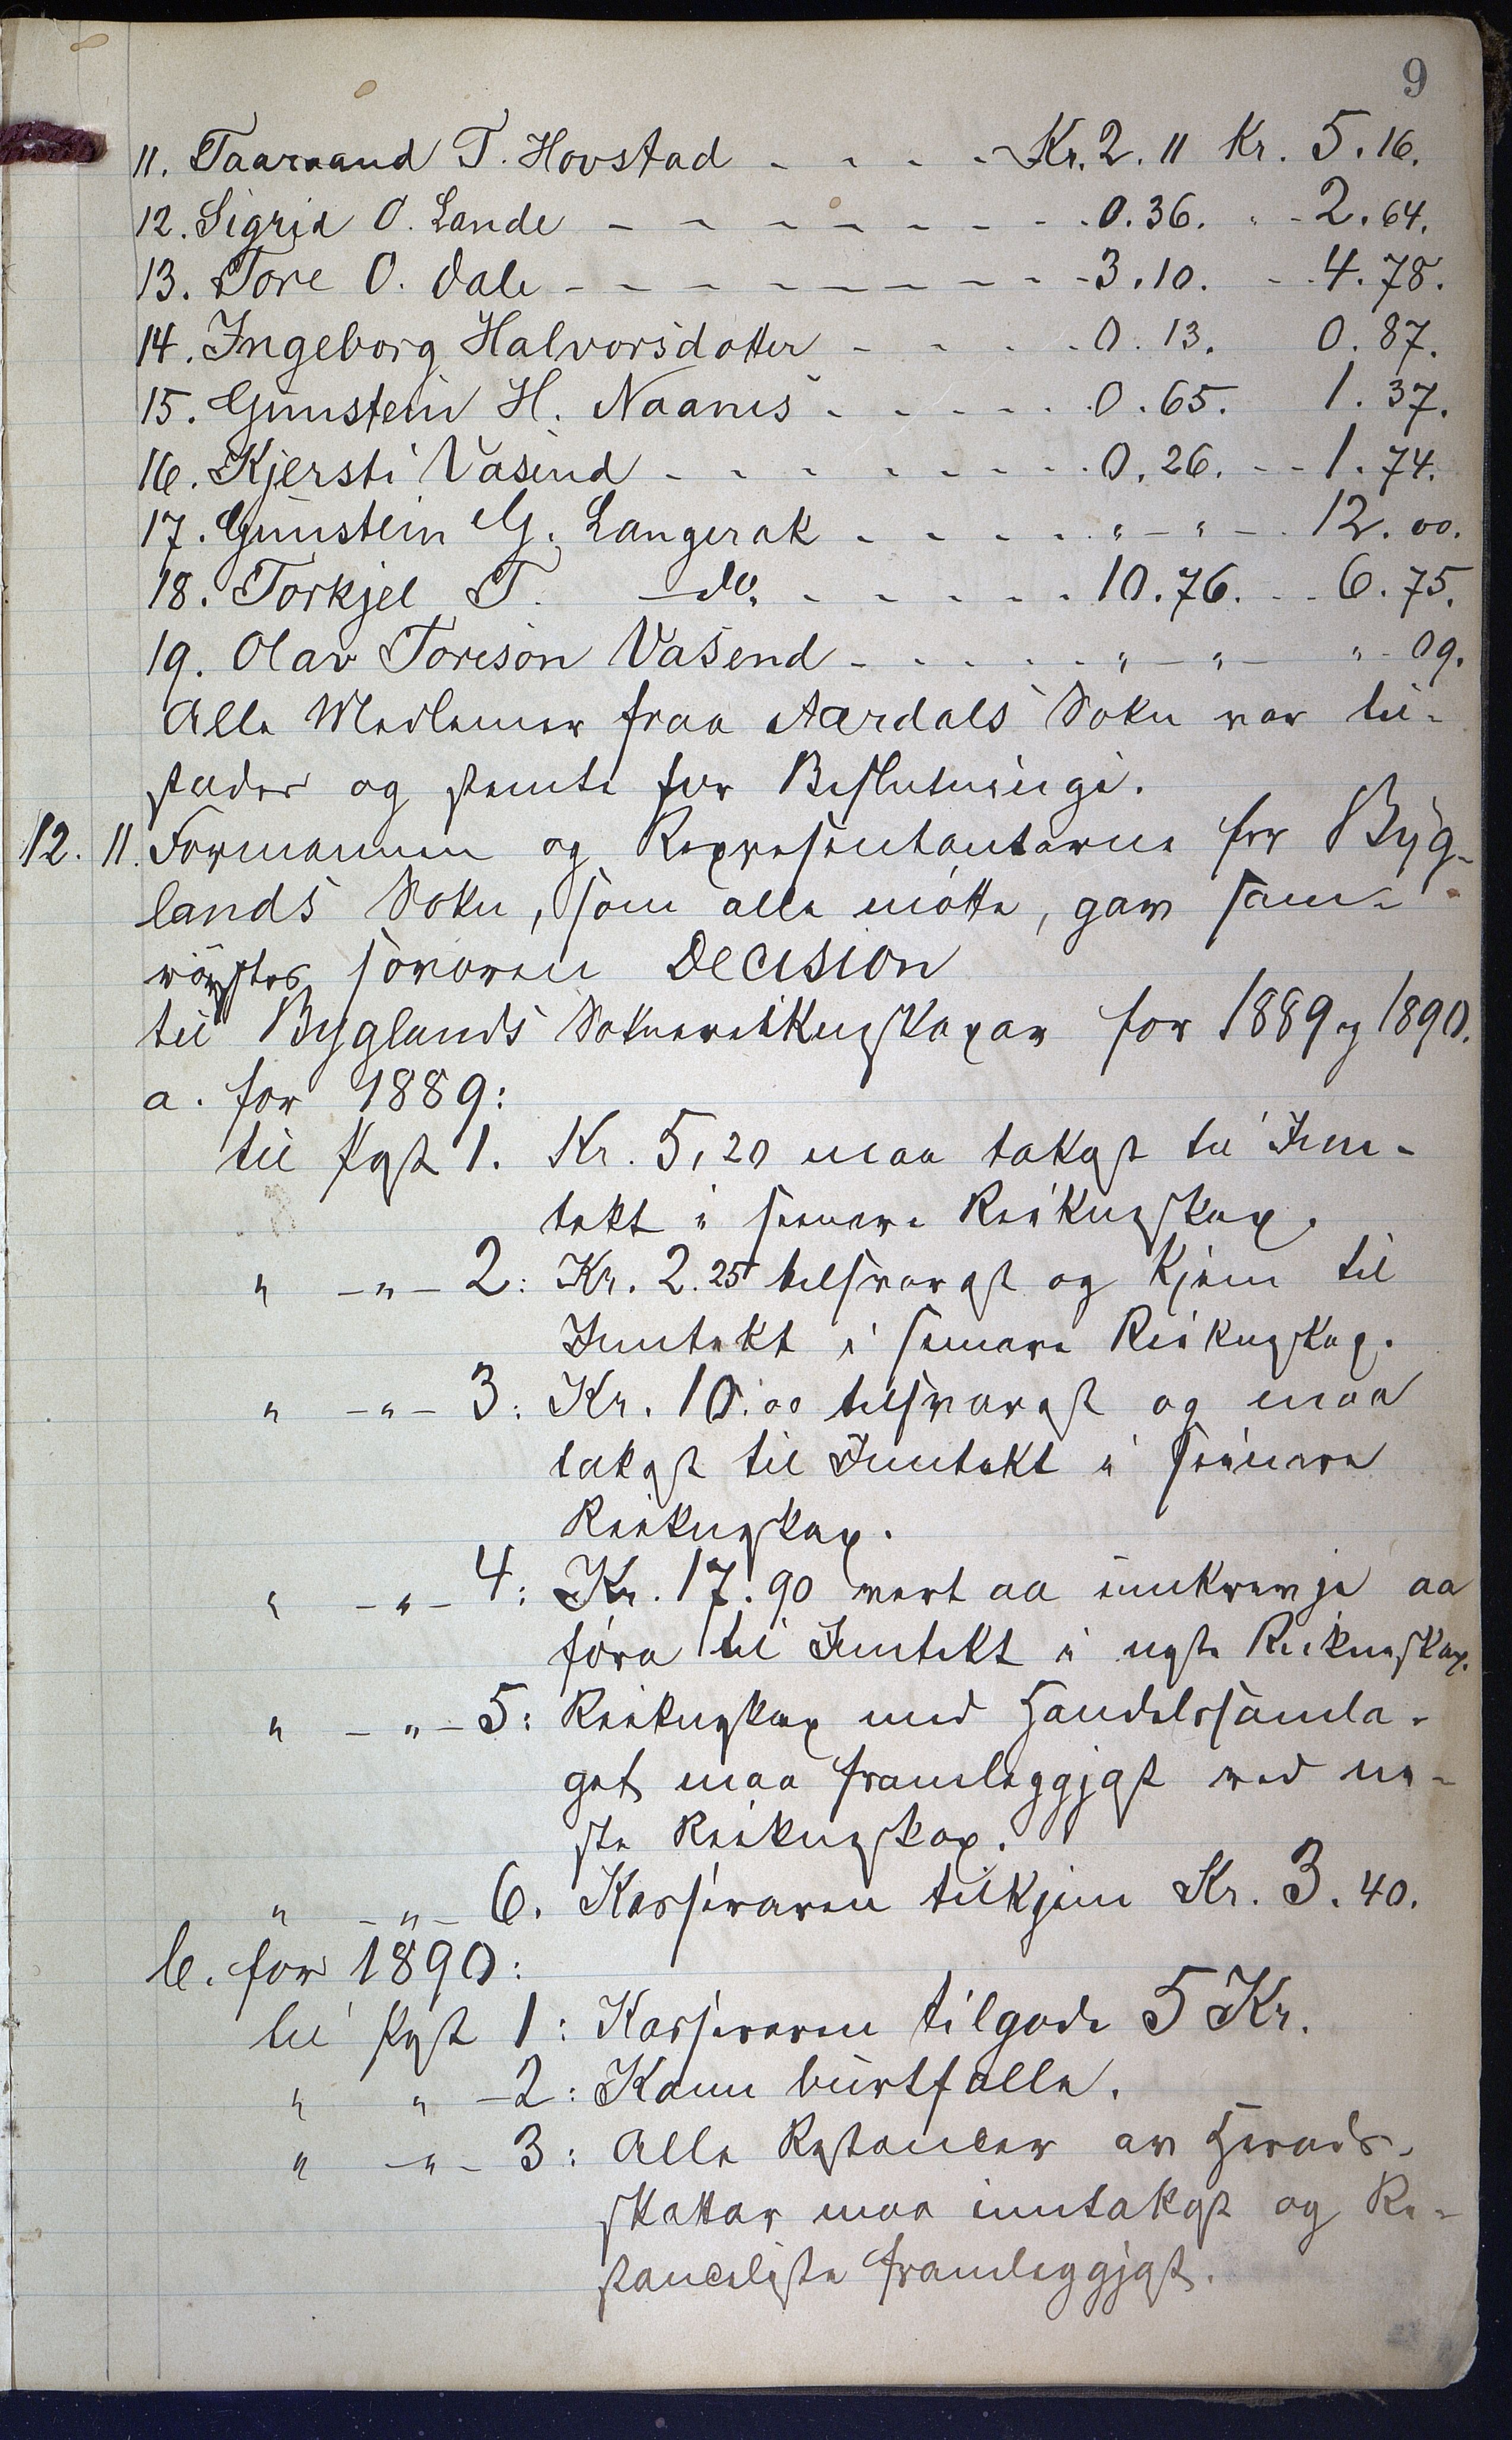 9
11. Taaraand T. Hovstad - - - - Kr. 2. 11 Kr. 5.16.
12. Sigrid O. Lande - - - - - - - - 0.36. " - 2.64.
13. Tore O. Dale - - - - - - - - - 3.10. - - 4.78.
14. Ingeborg Halvorsdotter - - - - 0.13. 0.87.
15. Gunstein H. Naanes - - - - - 0.65. 1.37.
16. Kjersti Vasend - - - - - - - - 0.26. - - 1.74.
17. Gunstein G. Langerak - - - - - " - " - 12.00.
18. Torkjel T. - do. - - - - - 10.76. - - 6.75.
19. Olav Toreson Vasend - - - - - " - " - " - 09.
Alle Medlemer fraa Aardals Sokn var til-
stades og stemte for Beslutningi.
12. 11. Formannen og Representantarne for Byg-
lands Sokn, som alle møtte, gav sam-
røystes sovoren Decision
til Byglands Soknereikneskapar for 1889 og 1890.
a. for 1889:
til Post 1. Kr. 5,20 maa takast til Inn-
tekt i seinare Reikneskap.
" - " - 2: Kr. 2.25 tilsvarast og kjem til
Inntekt i seinare Reikneskap.
" - " - 3: Kr. 10.00 tilsvarast og maa
takast til Inntekt i seinare
Reikneskap.
" - " - 4: Kr. 17.90 vert aa innkrevja aa
føra til Inntekt i neste Reikneskap.
" - " - 5: Reikneskap med Handelssamla-
get maa framleggjast ved ne-
ste Reikneskap.
" - " - 6. Kasseraren tilkjem Kr. 3.40.
b. for 1890:
til Post 1: Kasseraren tilgode 5 Kr.
" " - 2: Kann burtfalle.
" - " - 3: Alle Restancer av Herads-
skattar maa inntakast og Re-
stanceliste framleggjast.